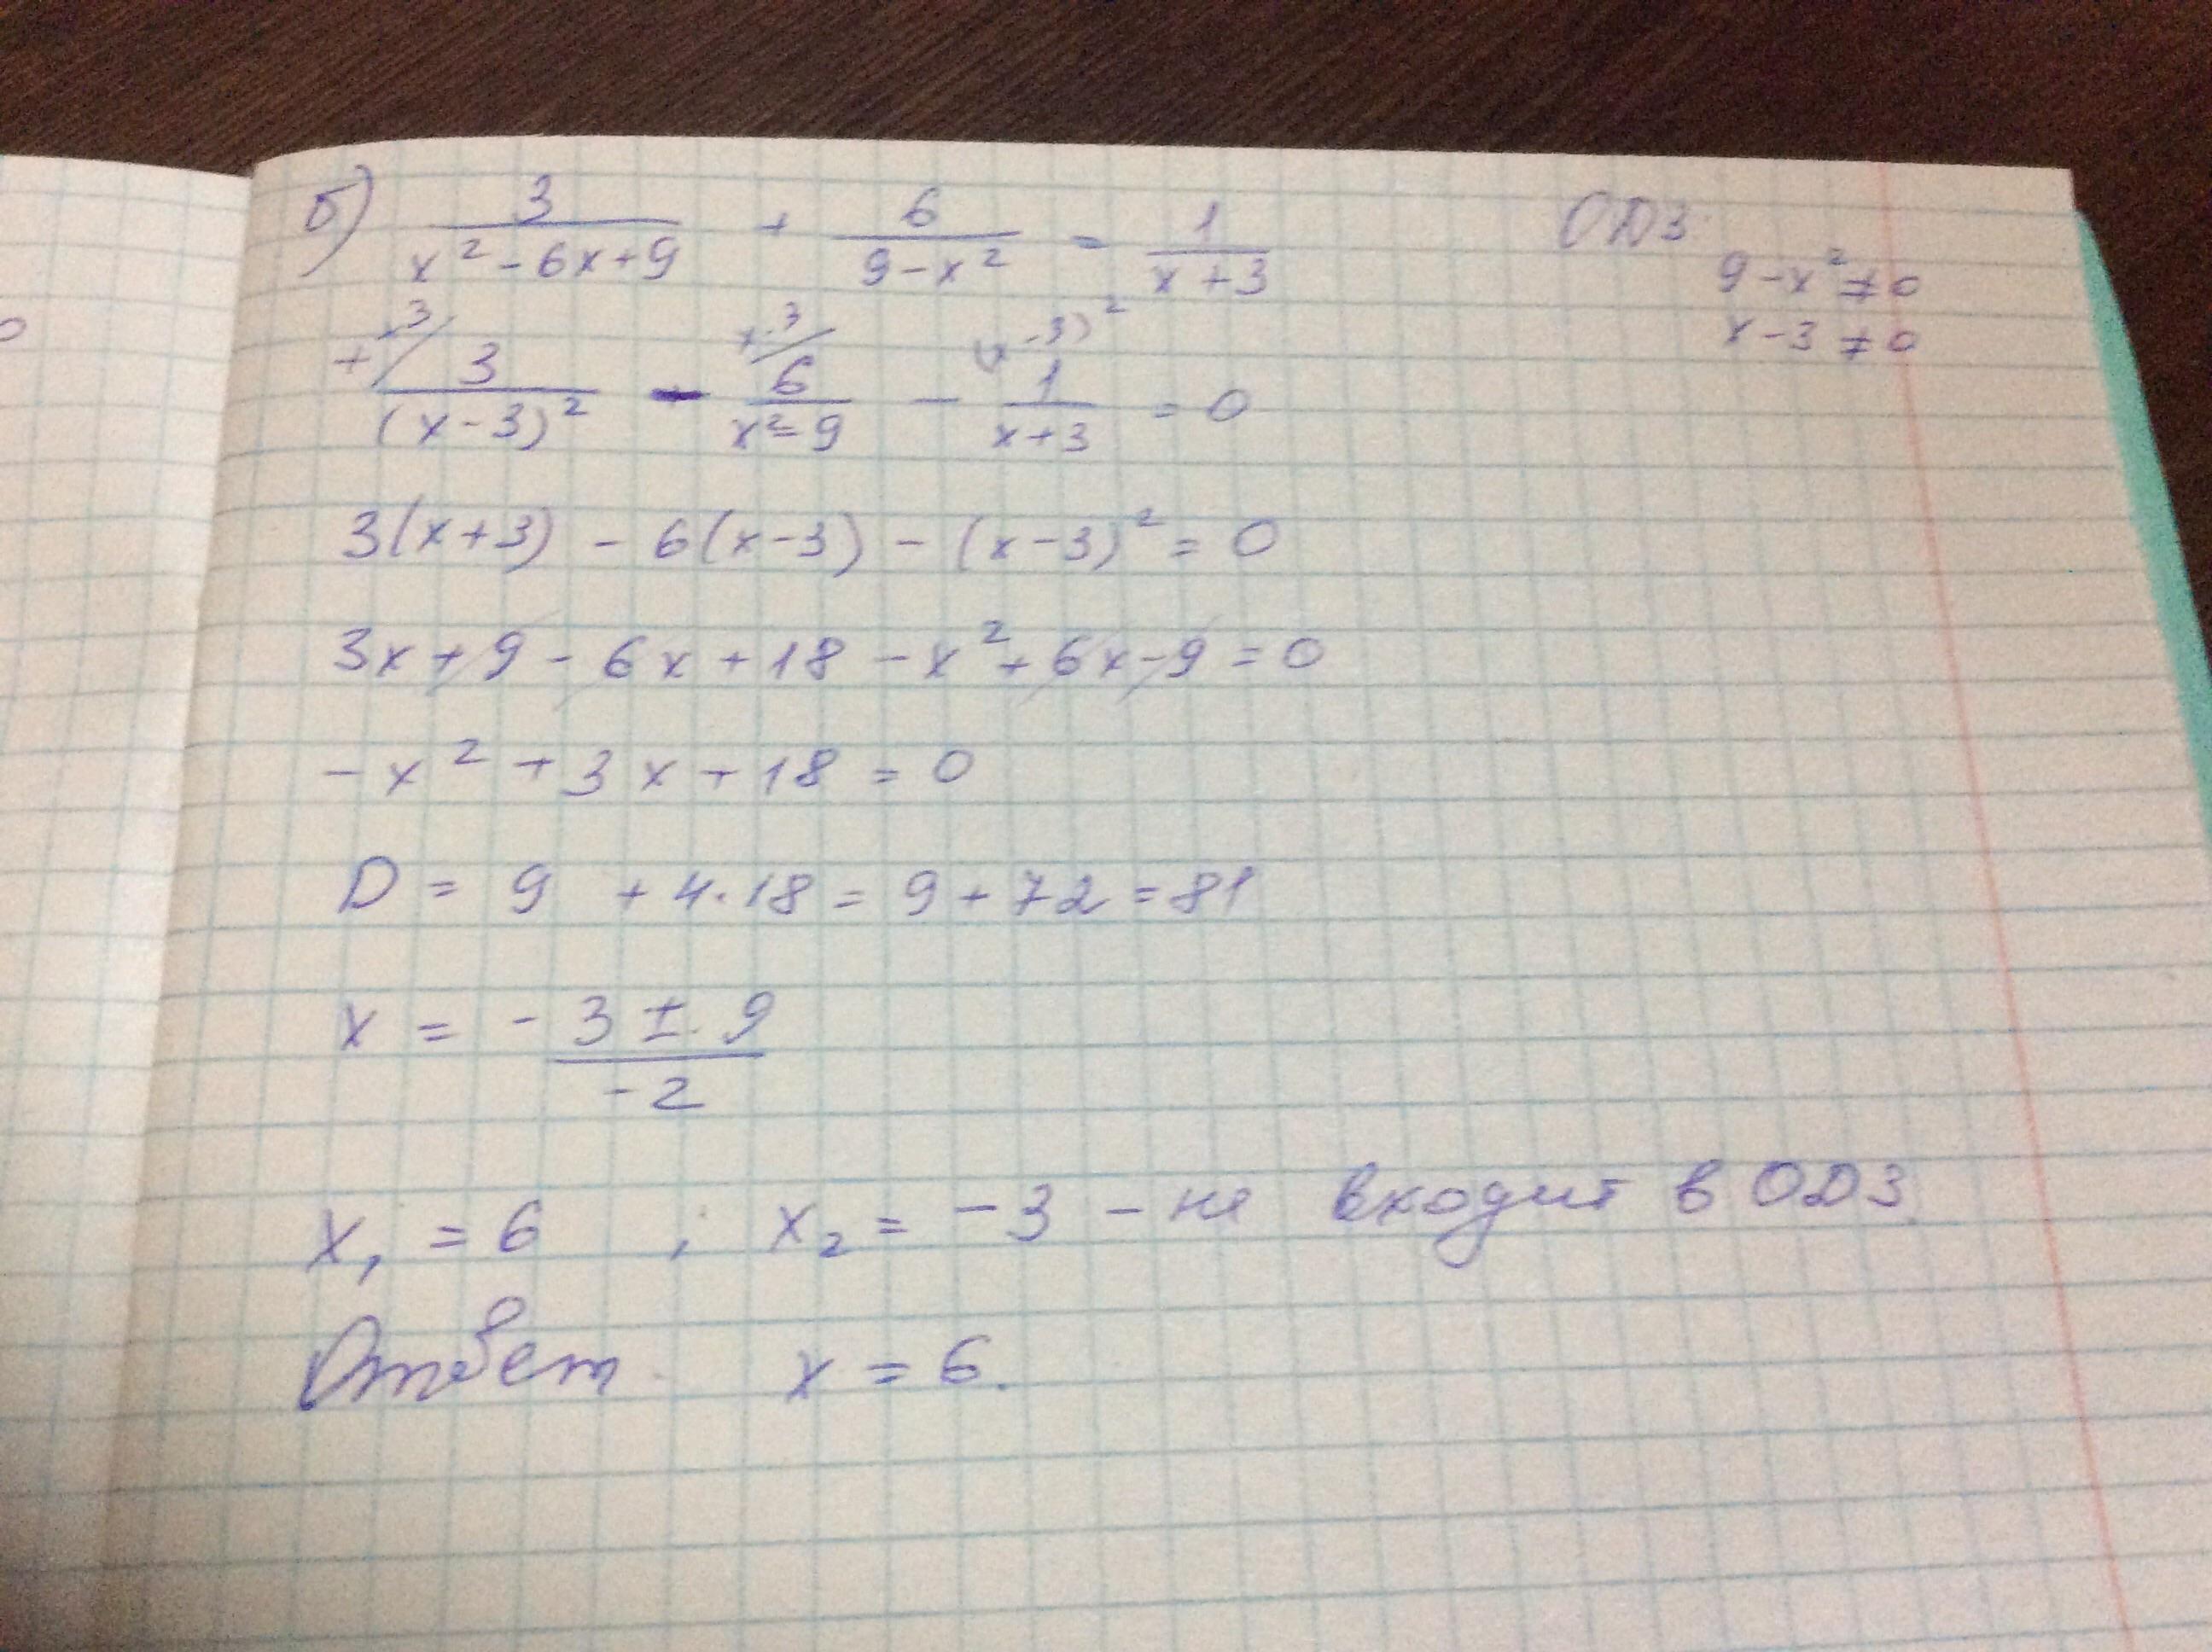 б) 3/(x² - 6x + 9) + 6/(9 - x²) = 1/(x + 3)
ОДЗ
9 - x² ≠ 0
x - 3 ≠ 0
3/(x - 3)² - 6/(x² - 9) - 1/(x + 3) = 0
3(x + 3) - 6(x - 3) - (x - 3)² = 0
3x + 9 - 6x + 18 - x² + 6x - 9 = 0
- x² + 3x + 18 = 0
D = 9 + 4·18 = 9 + 72 = 81
x = - 3 ± 9 / -2
x₁ = 6 ; x₂ = - 3 - не входит в ОДЗ
Ответ x = 6.